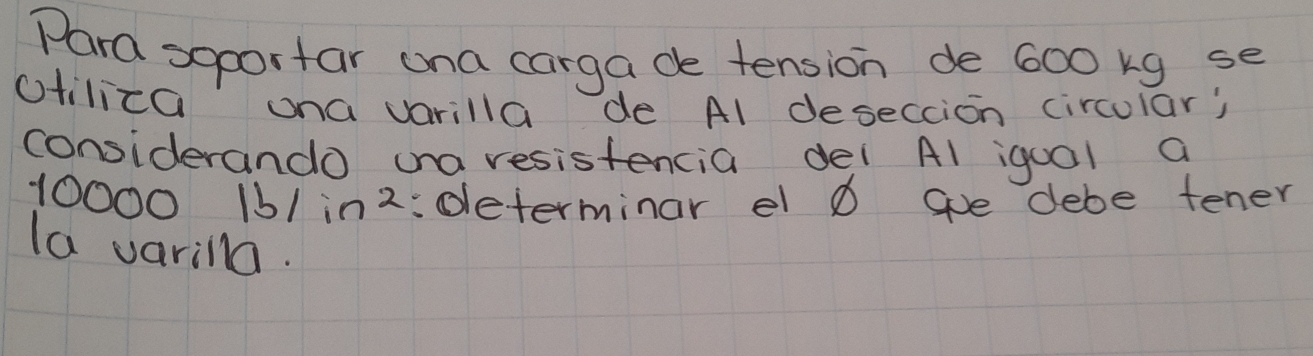 Para soportar una carga de tensión de 600 kg se
utiliza una varilla de Al de sección circular;
considerando una resistencia del Al igual a
10000 lb/in²: determinar el ϕ que debe tener
la varilla.